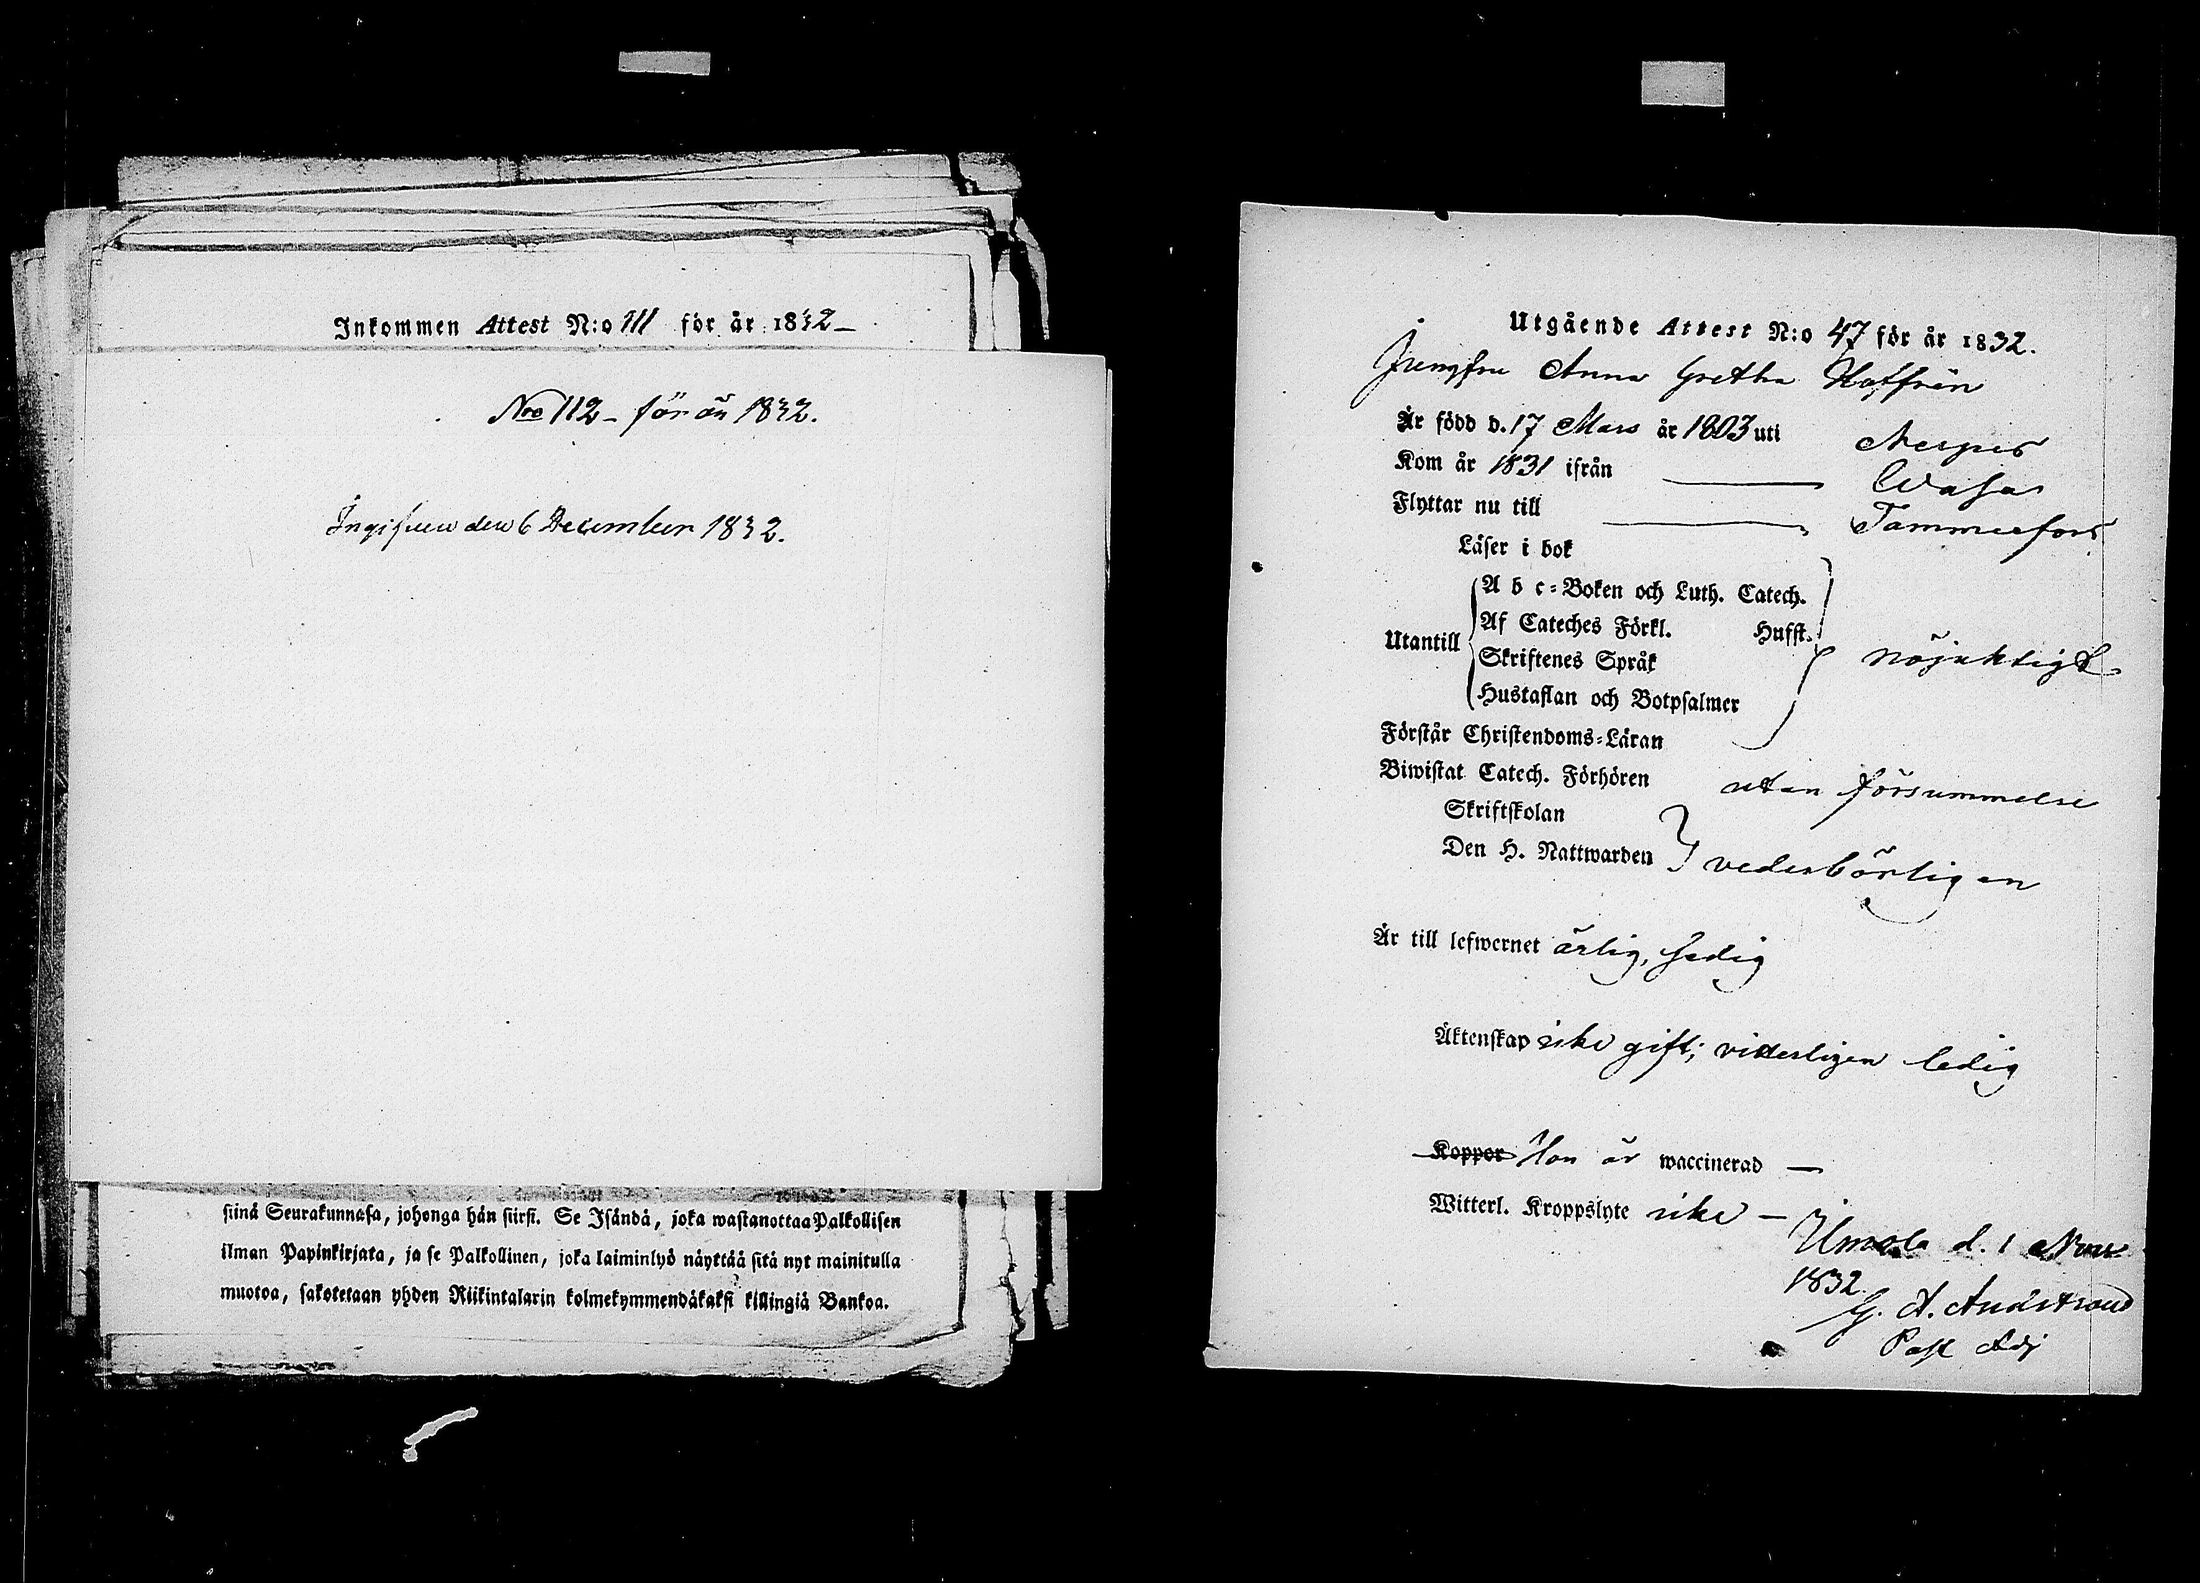 Inkommen Attest N:o 111 för år 1832 –
Nro 112 – för år 1832.
Ingifven den 6 December 1832.
siinä Seurakunnasa, johonga hän siirsi. Se Isändä, joka wastanottaa Palkollisen
ilman Papinkirjata, ja se Palkollinen, joka laiminlyö näyttää sitä nyt mainitulla
muotoa, sakotetaan yhden Riikintalarin kolmekymmendäkaksi killingiä Bankoa.
Utgående Attest N:o 47 för år 1832.
Jungfru Anna Gretha Hoffrén
Är född d. 17 Mars år 1803 uti Nerpes
Kom år 1831 ifrån — Wasa
Flyttar nu till — Tammerfors
Läser i bok
Utantill
A b c=Boken och Luth. Catech.
Af Cateches Förkl. Hufst.
Skriftenes Språk
Hustaflan och Botpsalmer
nöjaktigt
Förstår Christendoms=Läran
Biwistat Catech. Förhören utan försummelse
Skriftskolan
Den H. Nattwarden vederbörligen
Är till lefwernet ärlig, sedig
Äktenskap icke gift; vitterligen ledig
Koppor Hon är waccinerad —
Witterl. Kroppslyte icke —
d. 1 Nov.
1832.
G. A.
Past Adj